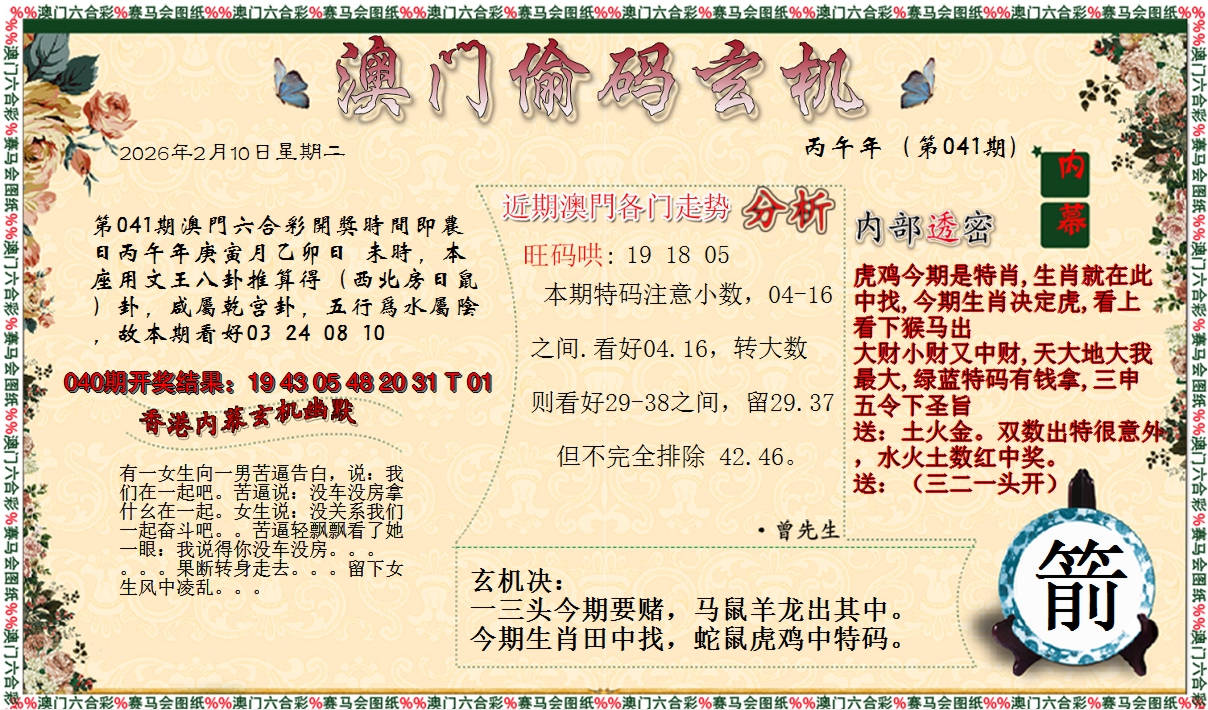 %%澳门六合彩%赛马会图纸%%澳门六合彩%赛马会图纸%%澳门六合彩%赛马会图纸%%澳门六合彩%赛马会图纸%%澳门六合彩%赛马会图纸%%澳门六合彩%赛马会图纸%%
澳门偷码玄机
2026年2月10日星期二
丙午年（第041期）
内幕
第041期澳門六合彩開獎時間即農
日丙午年庚寅月乙卯日 未時，本
座用文王八卦推算得（西北房日鼠
）卦，咸屬乾宫卦，五行爲水屬陰
，故本期看好03 24 08 10
040期开奖结果：19 43 05 48 20 31 T 01
香港内幕玄机幽默
有一女生向一男苦逼告白，说：我
们在一起吧。苦逼说：没车没房拿
什么在一起。女生说：没关系我们
一起奋斗吧。。苦逼轻飘飘看了她
一眼：我说得你没车没房。。。
。。。果断转身走去。。。留下女
生风中凌乱。。。
近期澳門各门走势 分析
旺码哄: 19 18 05
本期特码注意小数，04-16
之间.看好04.16，转大数
则看好29-38之间，留29.37
但不完全排除 42.46。
·曾先生
内部透密
虎鸡今期是特肖,生肖就在此
中找,今期生肖决定虎,看上
看下猴马出
大财小财又中财,天大地大我
最大,绿蓝特码有钱拿,三申
五令下圣旨
送：土火金。双数出特很意外
，水火土数红中奖。
送：（三二一头开）
玄机决：
一三头今期要赌，马鼠羊龙出其中。
今期生肖田中找，蛇鼠虎鸡中特码。
箭
%%澳门六合彩%赛马会图纸%%澳门六合彩%赛马会图纸%%澳门六合彩%赛马会图纸%%澳门六合彩%赛马会图纸%%澳门六合彩%赛马会图纸%%澳门六合彩%赛马会图纸%%